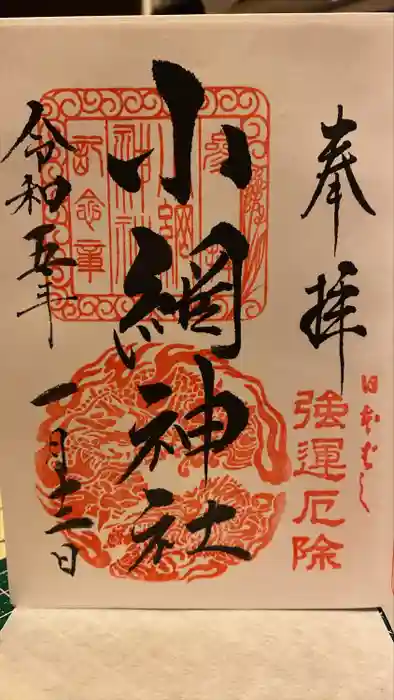 奉拝
日本ばし
強運厄除
小網神社
令和五年
一月十二日